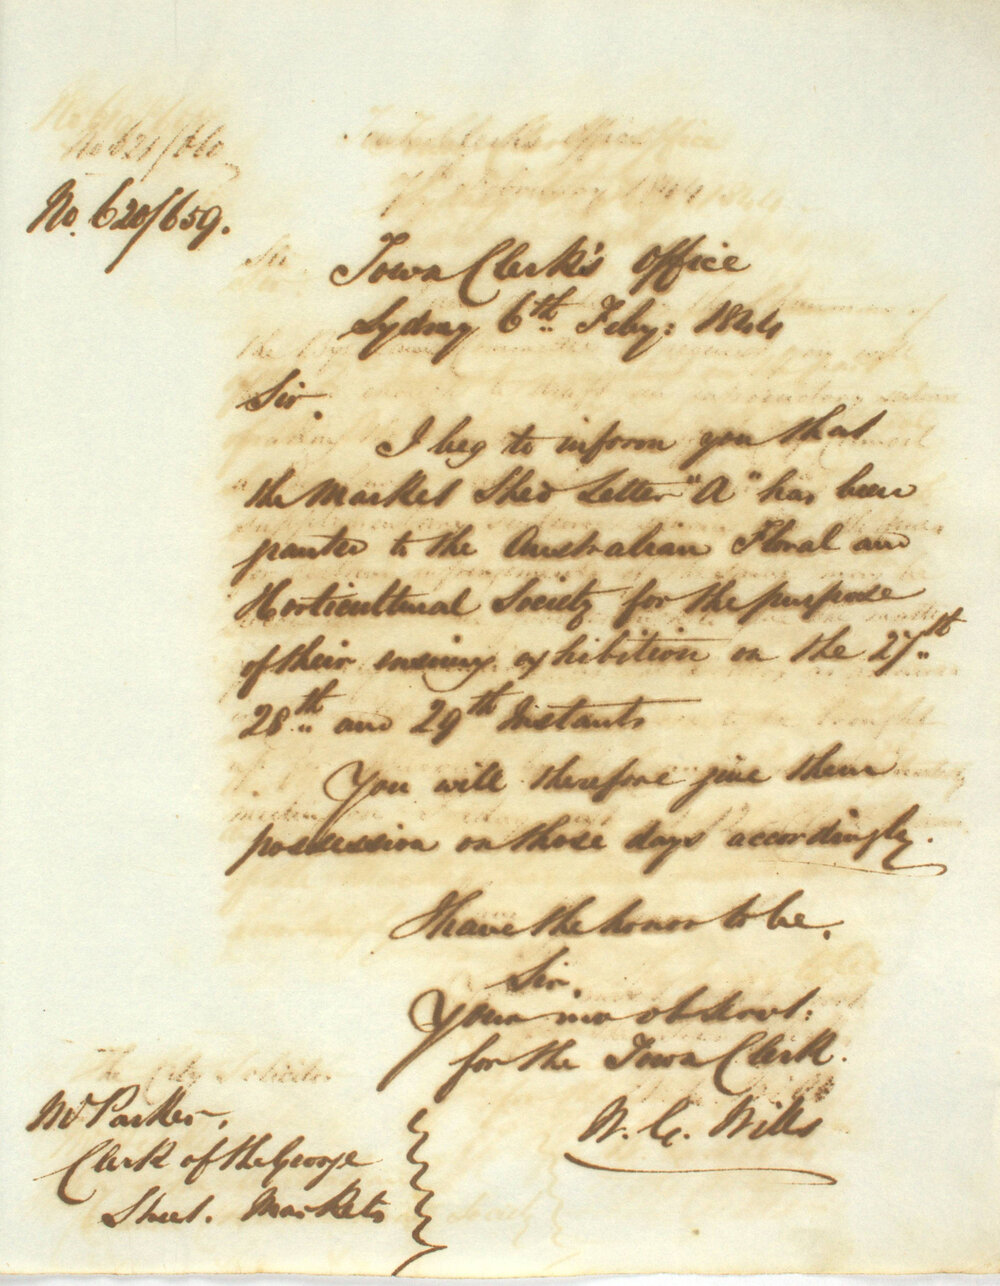 No. 620/659.
Town Clerk's Office
Sydney 6th Feby: 1844
Sir,
I beg to inform you that
the Market Shed Letter "A" has been
granted to the Australian Floral and
Horticultural Society for the purpose
of their ensuing exhibition on the 27th
28th and 29th Instants
You will therefore give them
possession on those days accordingly.
I have the honor to be,
Sir,
Your mo obt Servt:
for the Town Clerk.
W. C. Wills
Mr Parker,
Clerk of the George
Street. Markets